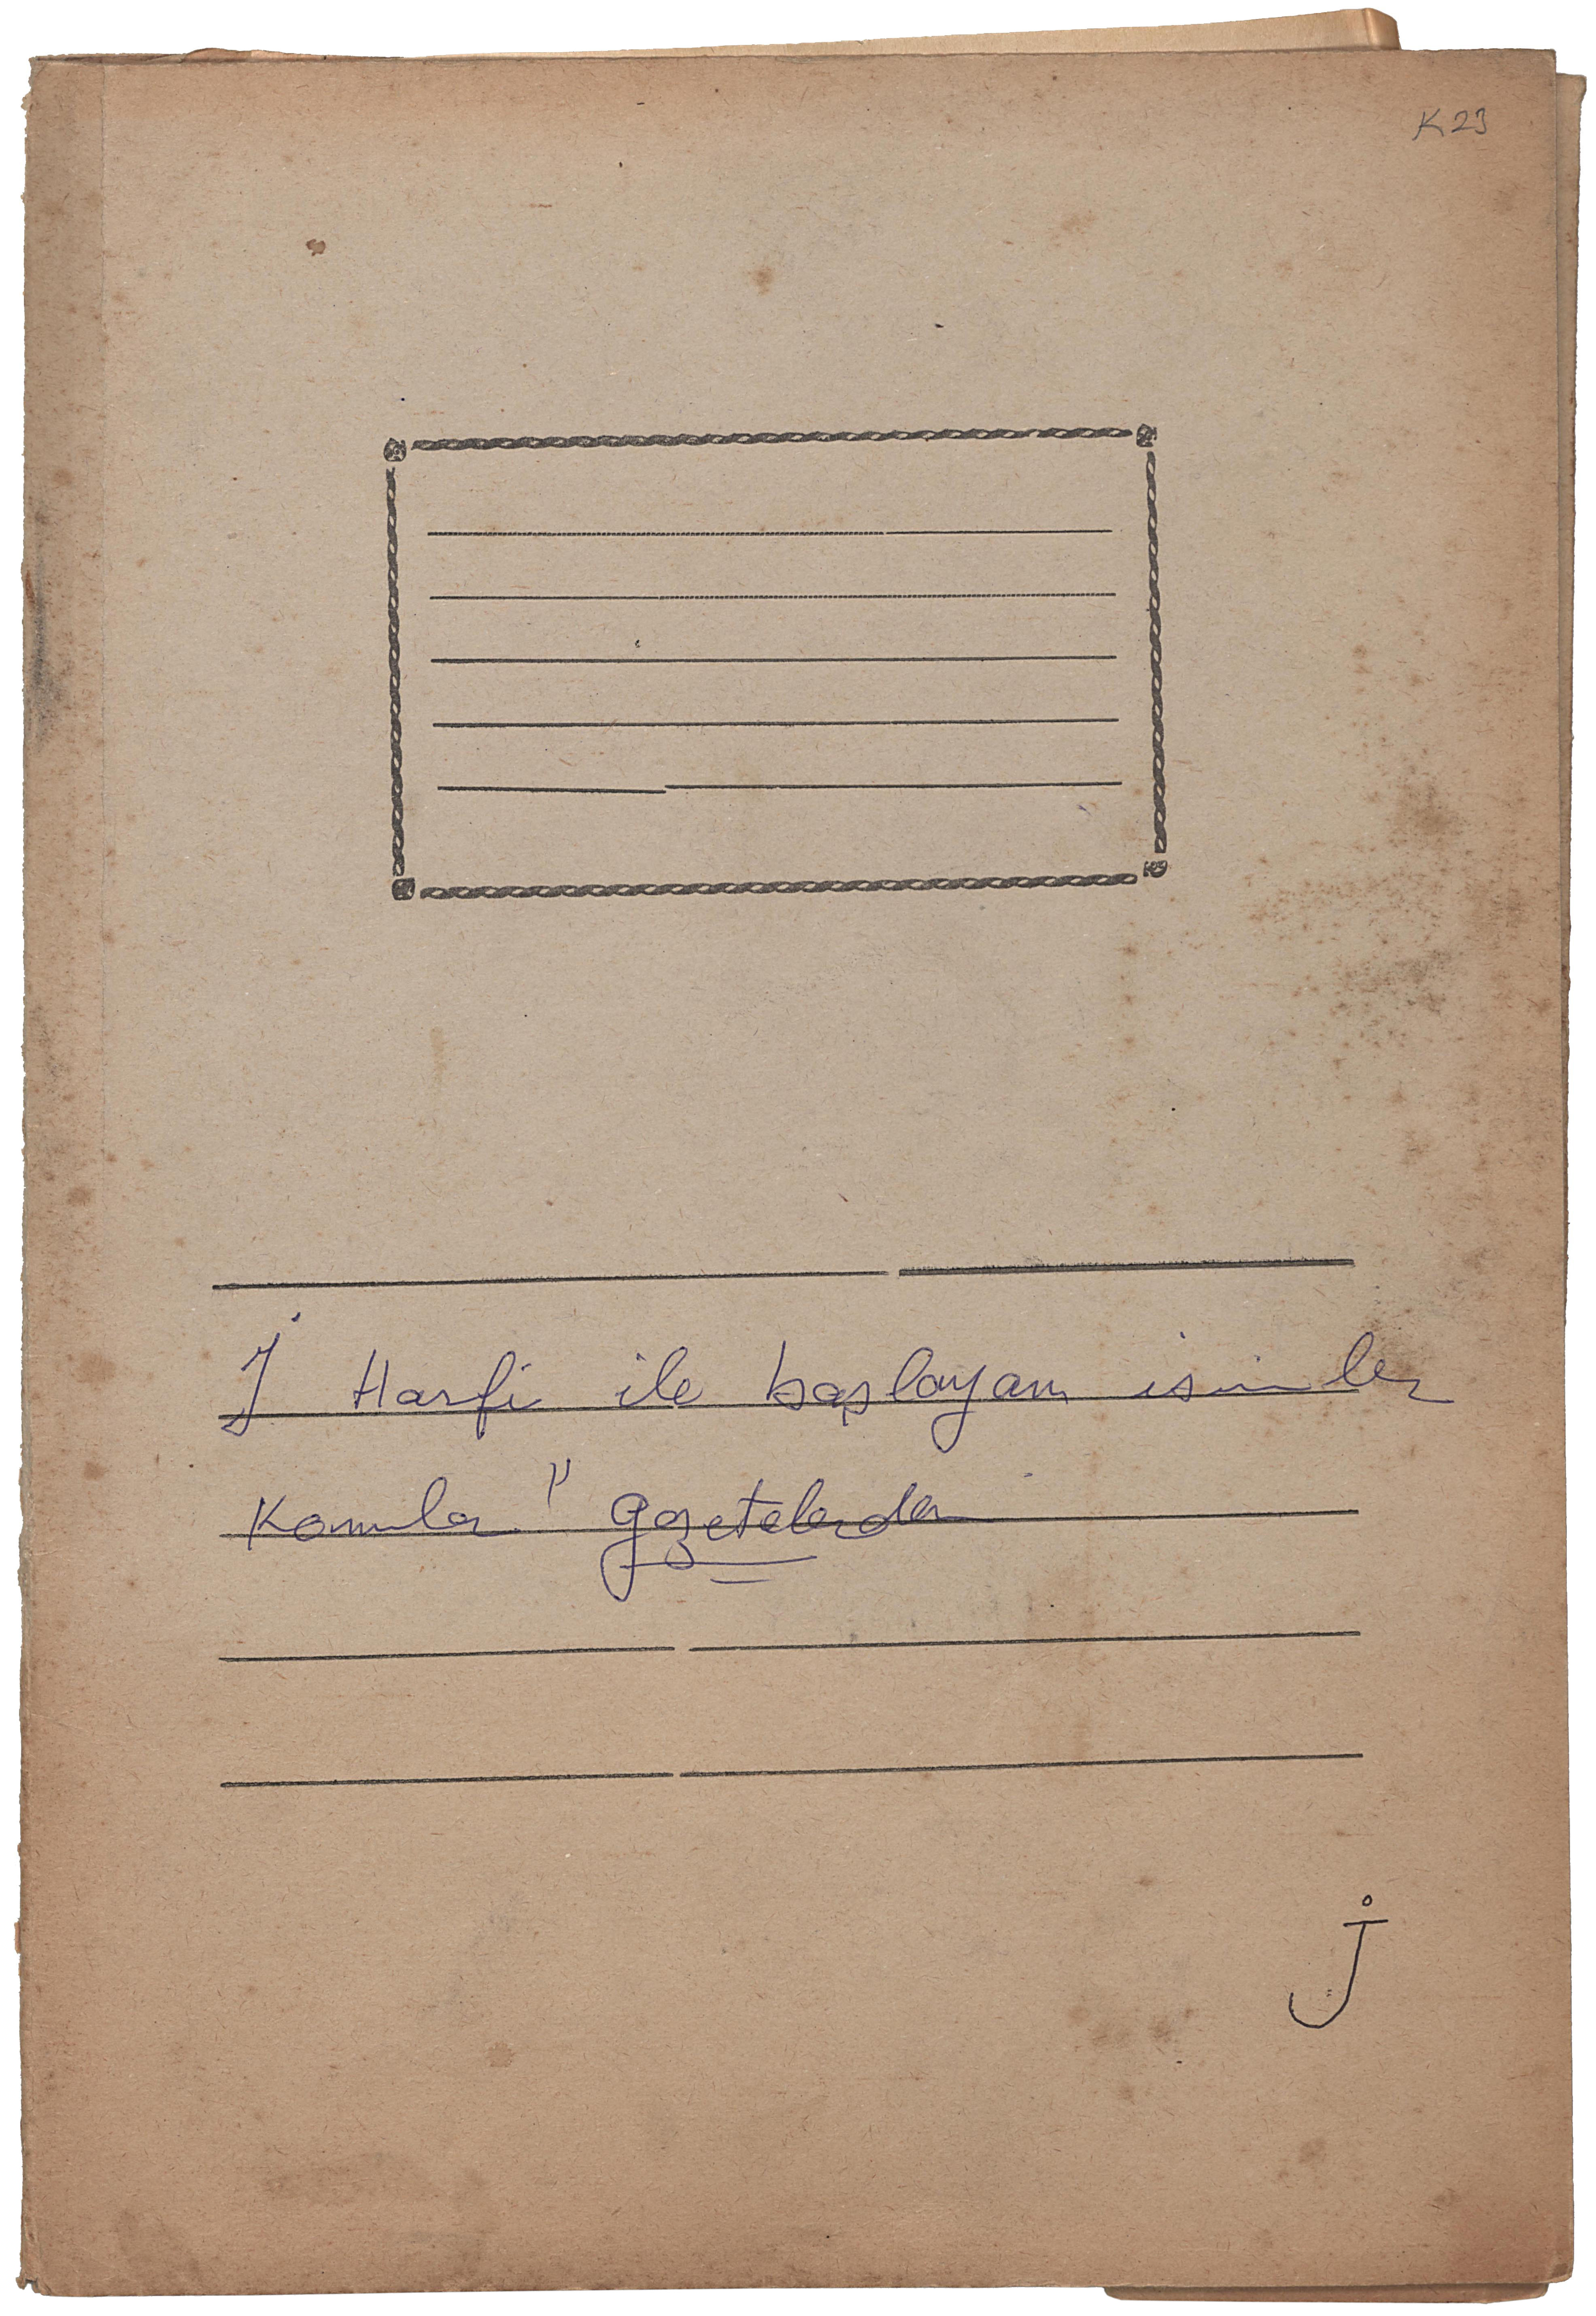 K23
J Harfi ile başlayan isimler
Konular " Gazetelerden
J